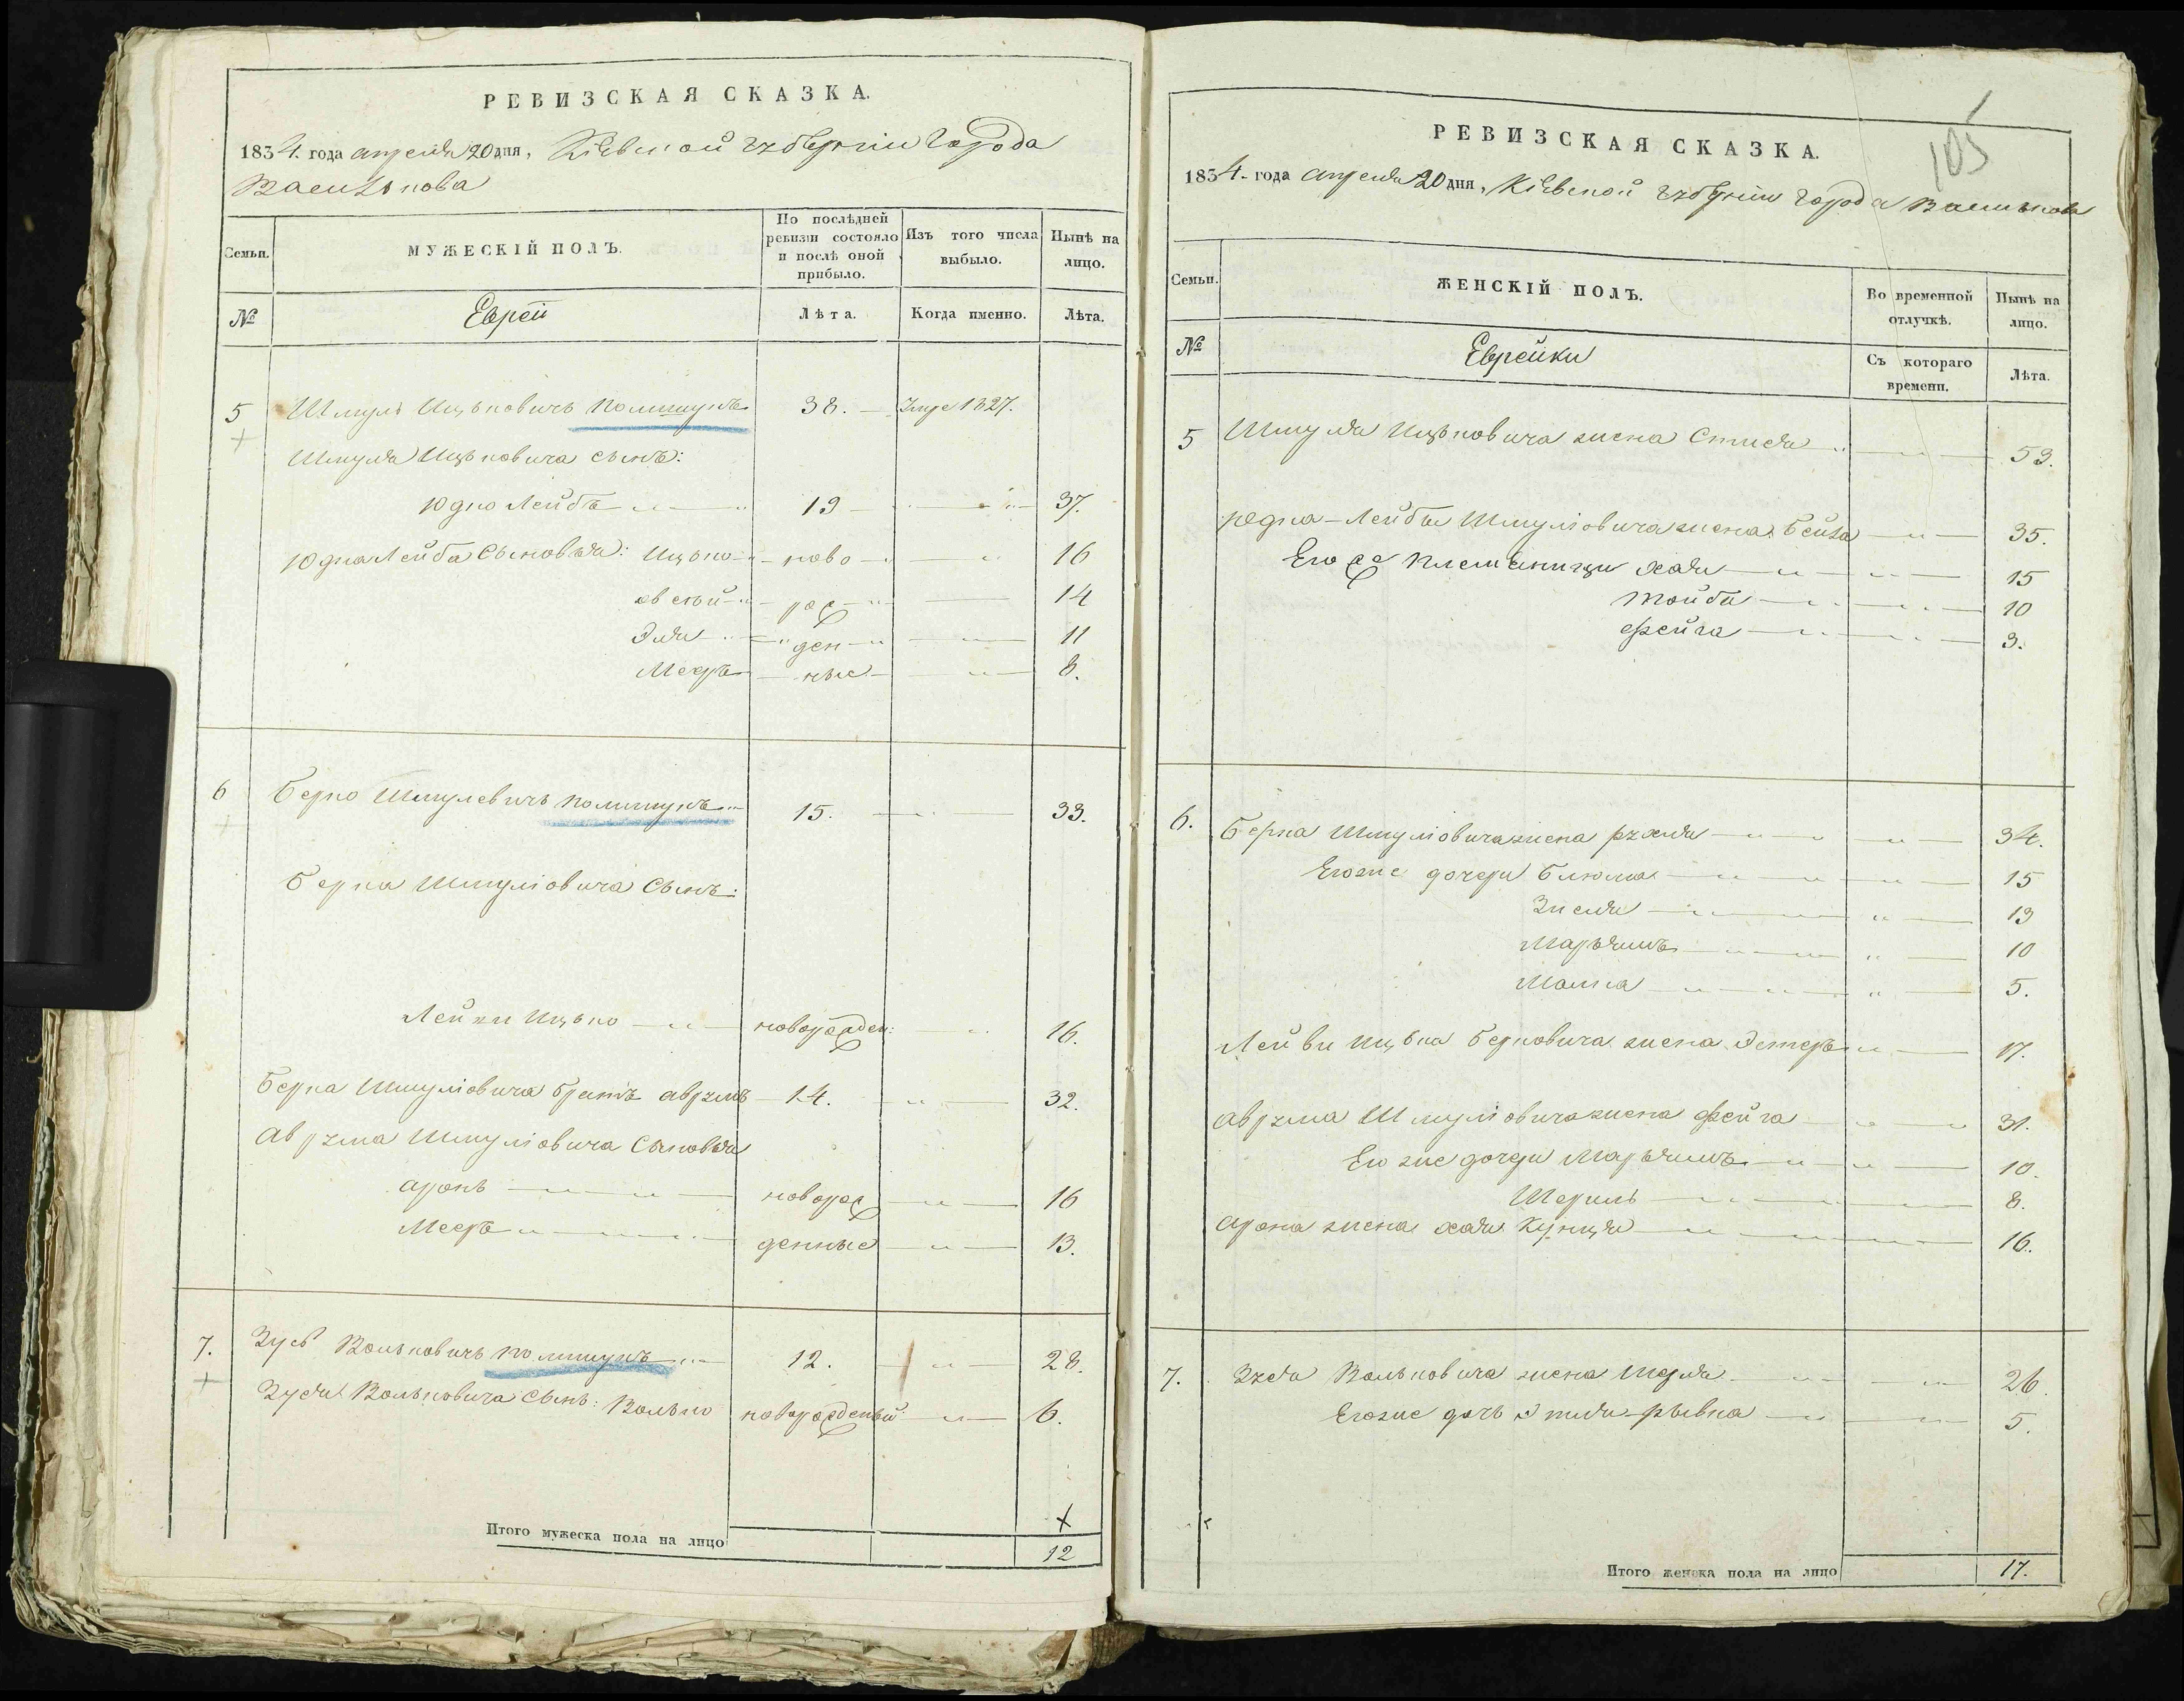 РЕВИЗСКАЯ СКАЗКА.
1834. года апреля 20 дня, Кіевской губерніи города
Василькова
Семьи.
МУЖЕСКІЙ ПОЛЪ.
По послѣдней ревизіи состояло и послѣ оной прибыло.
Изъ того числа выбыло.
Нынѣ на лицо.
№
Еврей
Лѣта.
Когда именно.
Лѣта.
5 Шмуль Ицьковичъ Полищукъ 38. Умре 1827.
Шмуля Ицьковича сынъ:
Юдко Лейбъ 19 37.
Юдка Лейба сыновья: Ицько ново 16
Овсѣй рож 14
Эля ден 11
Мееръ ные 8.
6 Берко Шмулевичъ Полищукъ 15. 33.
Берка Шмуліовича Сынъ:
Ицько новорожден: 16.
Берка Шмуліовича братъ Аврумъ 14. 32.
Аврума Шмуліовича Сыновья
Аронъ новорож 16
Мееръ денные 13.
7. Зусь Вольковичъ Полищукъ 12. 28.
Зуся Вольковича сынъ: Волько новорожденый 6.
Итого мужеска пола на лицо
12
105
РЕВИЗСКАЯ СКАЗКА.
1834. года апреля 20 дня, Кіевской губерніи города Василькова
Семьи.
ЖЕНСКІЙ ПОЛЪ.
Во временной отлучкѣ.
Нынѣ на лицо.
№
Еврейки
Съ котораго времени.
Лѣта.
5 Шмуля Ицьковича жена 53.
Юдка-Лейбы Шмуліовича жена Бейла 35.
Его же племенницы Хая 15
Тойба 10
Фейга 3.
6. Берка Шмуліовича жена Рухля 34.
Егоже дочери Блюма 15
Зисля 13
Марьямъ 10
Малка 5.
Ицька Берковича жена Эстеръ 17.
Аврума Шмуліовича жена Фейга 31.
Его же дочери Марьямъ 10.
8.
Арона жена Хая 16.
7. Зуся Вольковича жена 26.
Егоже дочь Рывка 5.
Итого женска пола на лицо
17.